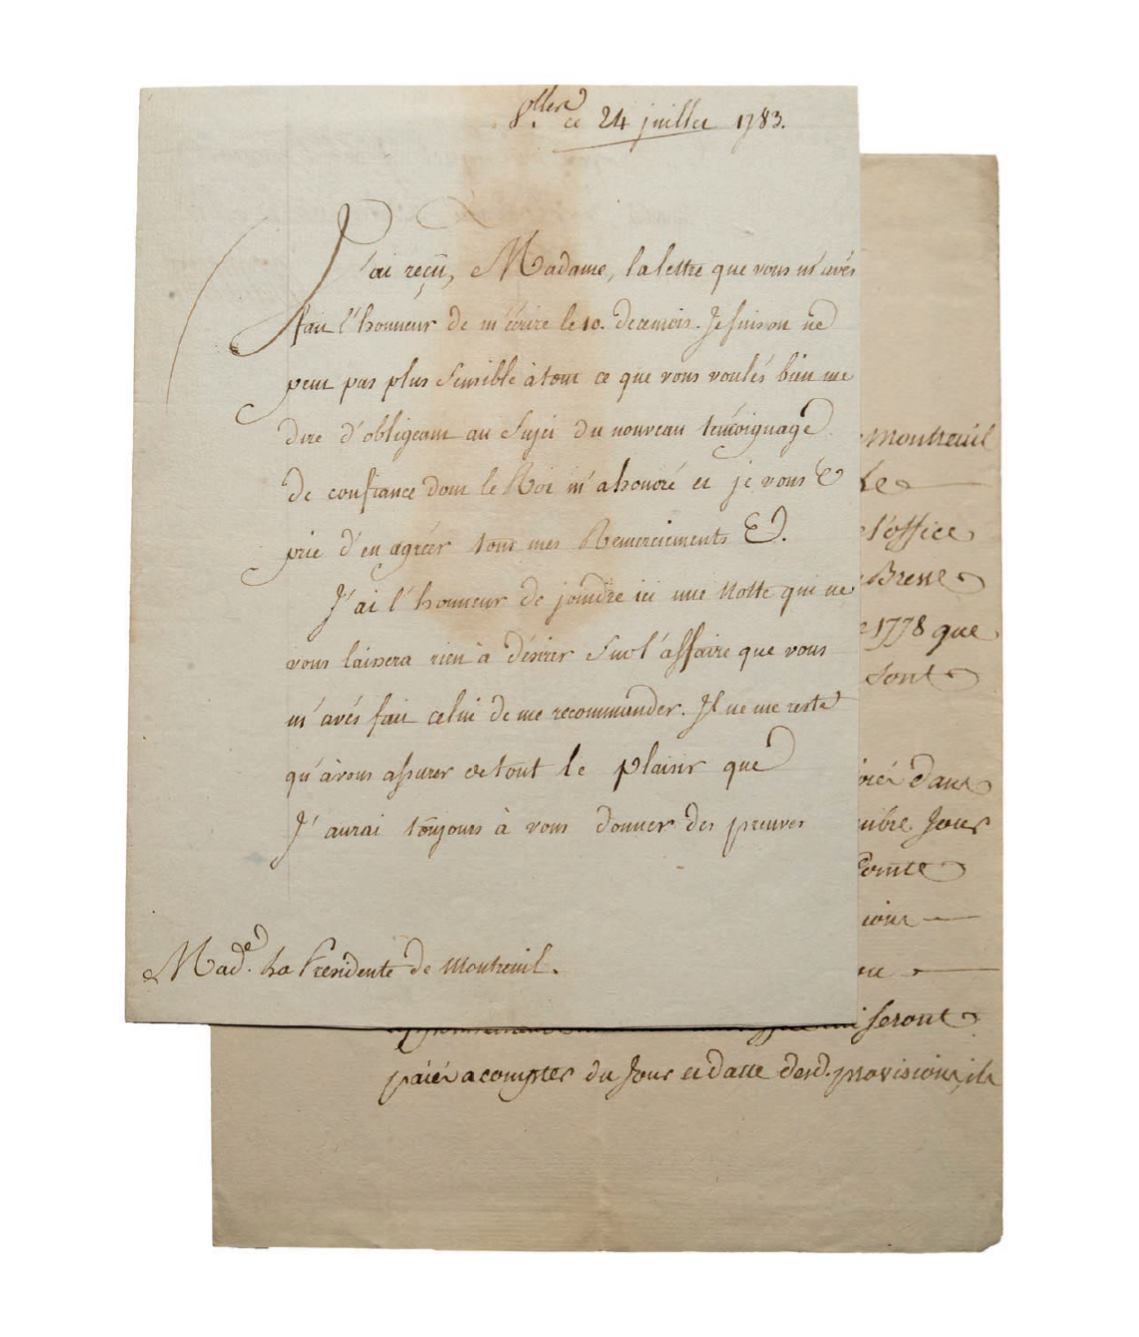 V.lles ce 24 juillet 1783.
J'ai reçû, Madame, la lettre que vous m'avés
fait l'honneur de m'écrire le 10. de ce mois. Je suis on ne
peut pas plus sensible à tout ce que vous voulés bien me
dire d'obligeant au sujet du nouveau témoignage
de confiance dont le Roi m'a honoré et je vous
prie d'en agréer tous mes Remerciements
J'ai l'honneur de joindre ici une Notte qui ne
vous laissera rien à désirer sur l'affaire que vous
m'avés fait celui de me recommander. Il ne me reste
qu'à vous assurer de tout le plaisir que
J'aurai toûjours à vous donner des preuves
Made. La Présidente de Montreuil.
Montreuil
Le
l'office
Bresse
1778 que
sont
dans
Jour
Comte
seront
païés a compter du Jour et datte desd. provisions, ils